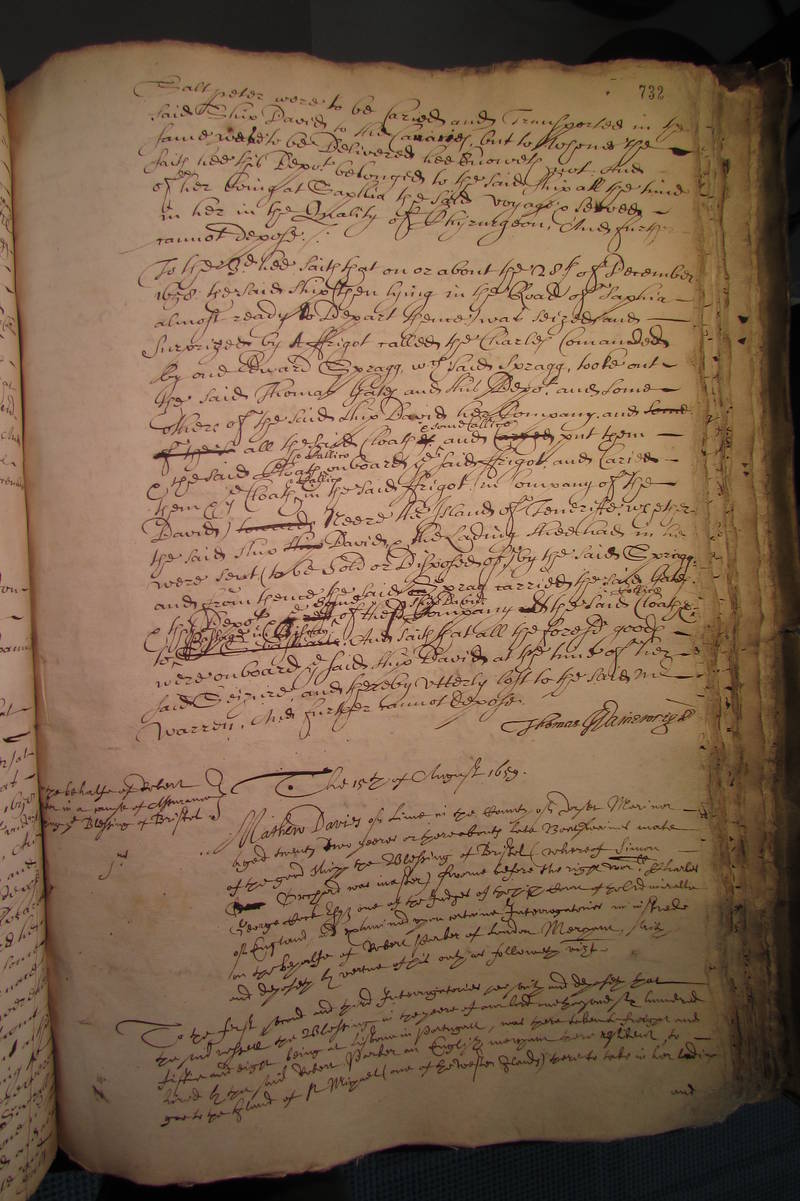 732
Salt peter were to be Caried and Transported in the
said Ship David to the Canaries, but to whome the
same were to be Delivered hee knoweth not. And
saith hee this Depot belonged to the said ship all the time
of her being at Saphia the said voyage & served
in her in the Quality of Chyrurgeon, And further
cannot depose.
To the 3d hee saith that on or about the 28th of December
1658 the said ship (then lying in the Road of Saphia
almost ready to Depart thence) was seized and
Surprized by A ffrigot called the Charles Comanded
by one Edward Spragg, wch said Spragg, tooke out
the said Thomas Gates and this Depot and some
others of the said ship David her Company, and some
of the all the said Cloath & some Callico and put them
& the said Cloath & the Callico onboard ye said ffrigot, and Caried
them & ye Cloath & Callico in the said ffrigot (in Company of the
David) towards Neere the Island of Teneriffe, whether
the said ship David & the Lading shee had in her
were sent (to be Sold or Disposed of) by the said Spragg,
and from thence the said Sprag carried the said Gates
& this Depot & some of the ship Davids Company & the said Cloath & Callico
to
And saith that all the foresd goods
were onboard ye said ship David at the time of her
said Seizure and thereby Utterly lost to the said Mr
Warren, And further cannot depose.
Thomas
The 15th of August 1659.
the behalfe of Robert
in a cause of Assurance
ye Blessing of Bristol
Mathew Davies of Lime in the County of Dorset Mariner
aged twenty two yeeres or thereabouts late Boatswaines mate
of the good ship the Blessing of Bristol (whereof Simon
was master) sworne before the right worll Charles
George Cock Esqr one of the Judges of the high Court of the Admiralty
of England, and examined upon certaine Interrogatories ministred
on the behalfe of Robert Parker of London Merchant, saith
and deposeth by vertue of his oath as followeth vizt.
To the first second and third Interrogatories hee saith and deposeth that
the said vessell the Blessing in the yeere of our lord one thousand six hundred
fiftie and eight being at Lisbone in Portugall, was there taken to freight and
hired by the said Robert Parker an English merchant there resident, to
goe to the Island of St Michael (one of the Wester Islands) there to take in her lading
and